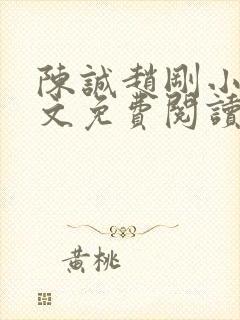 陳誠趙剛小
文免費閱讀
黃桃